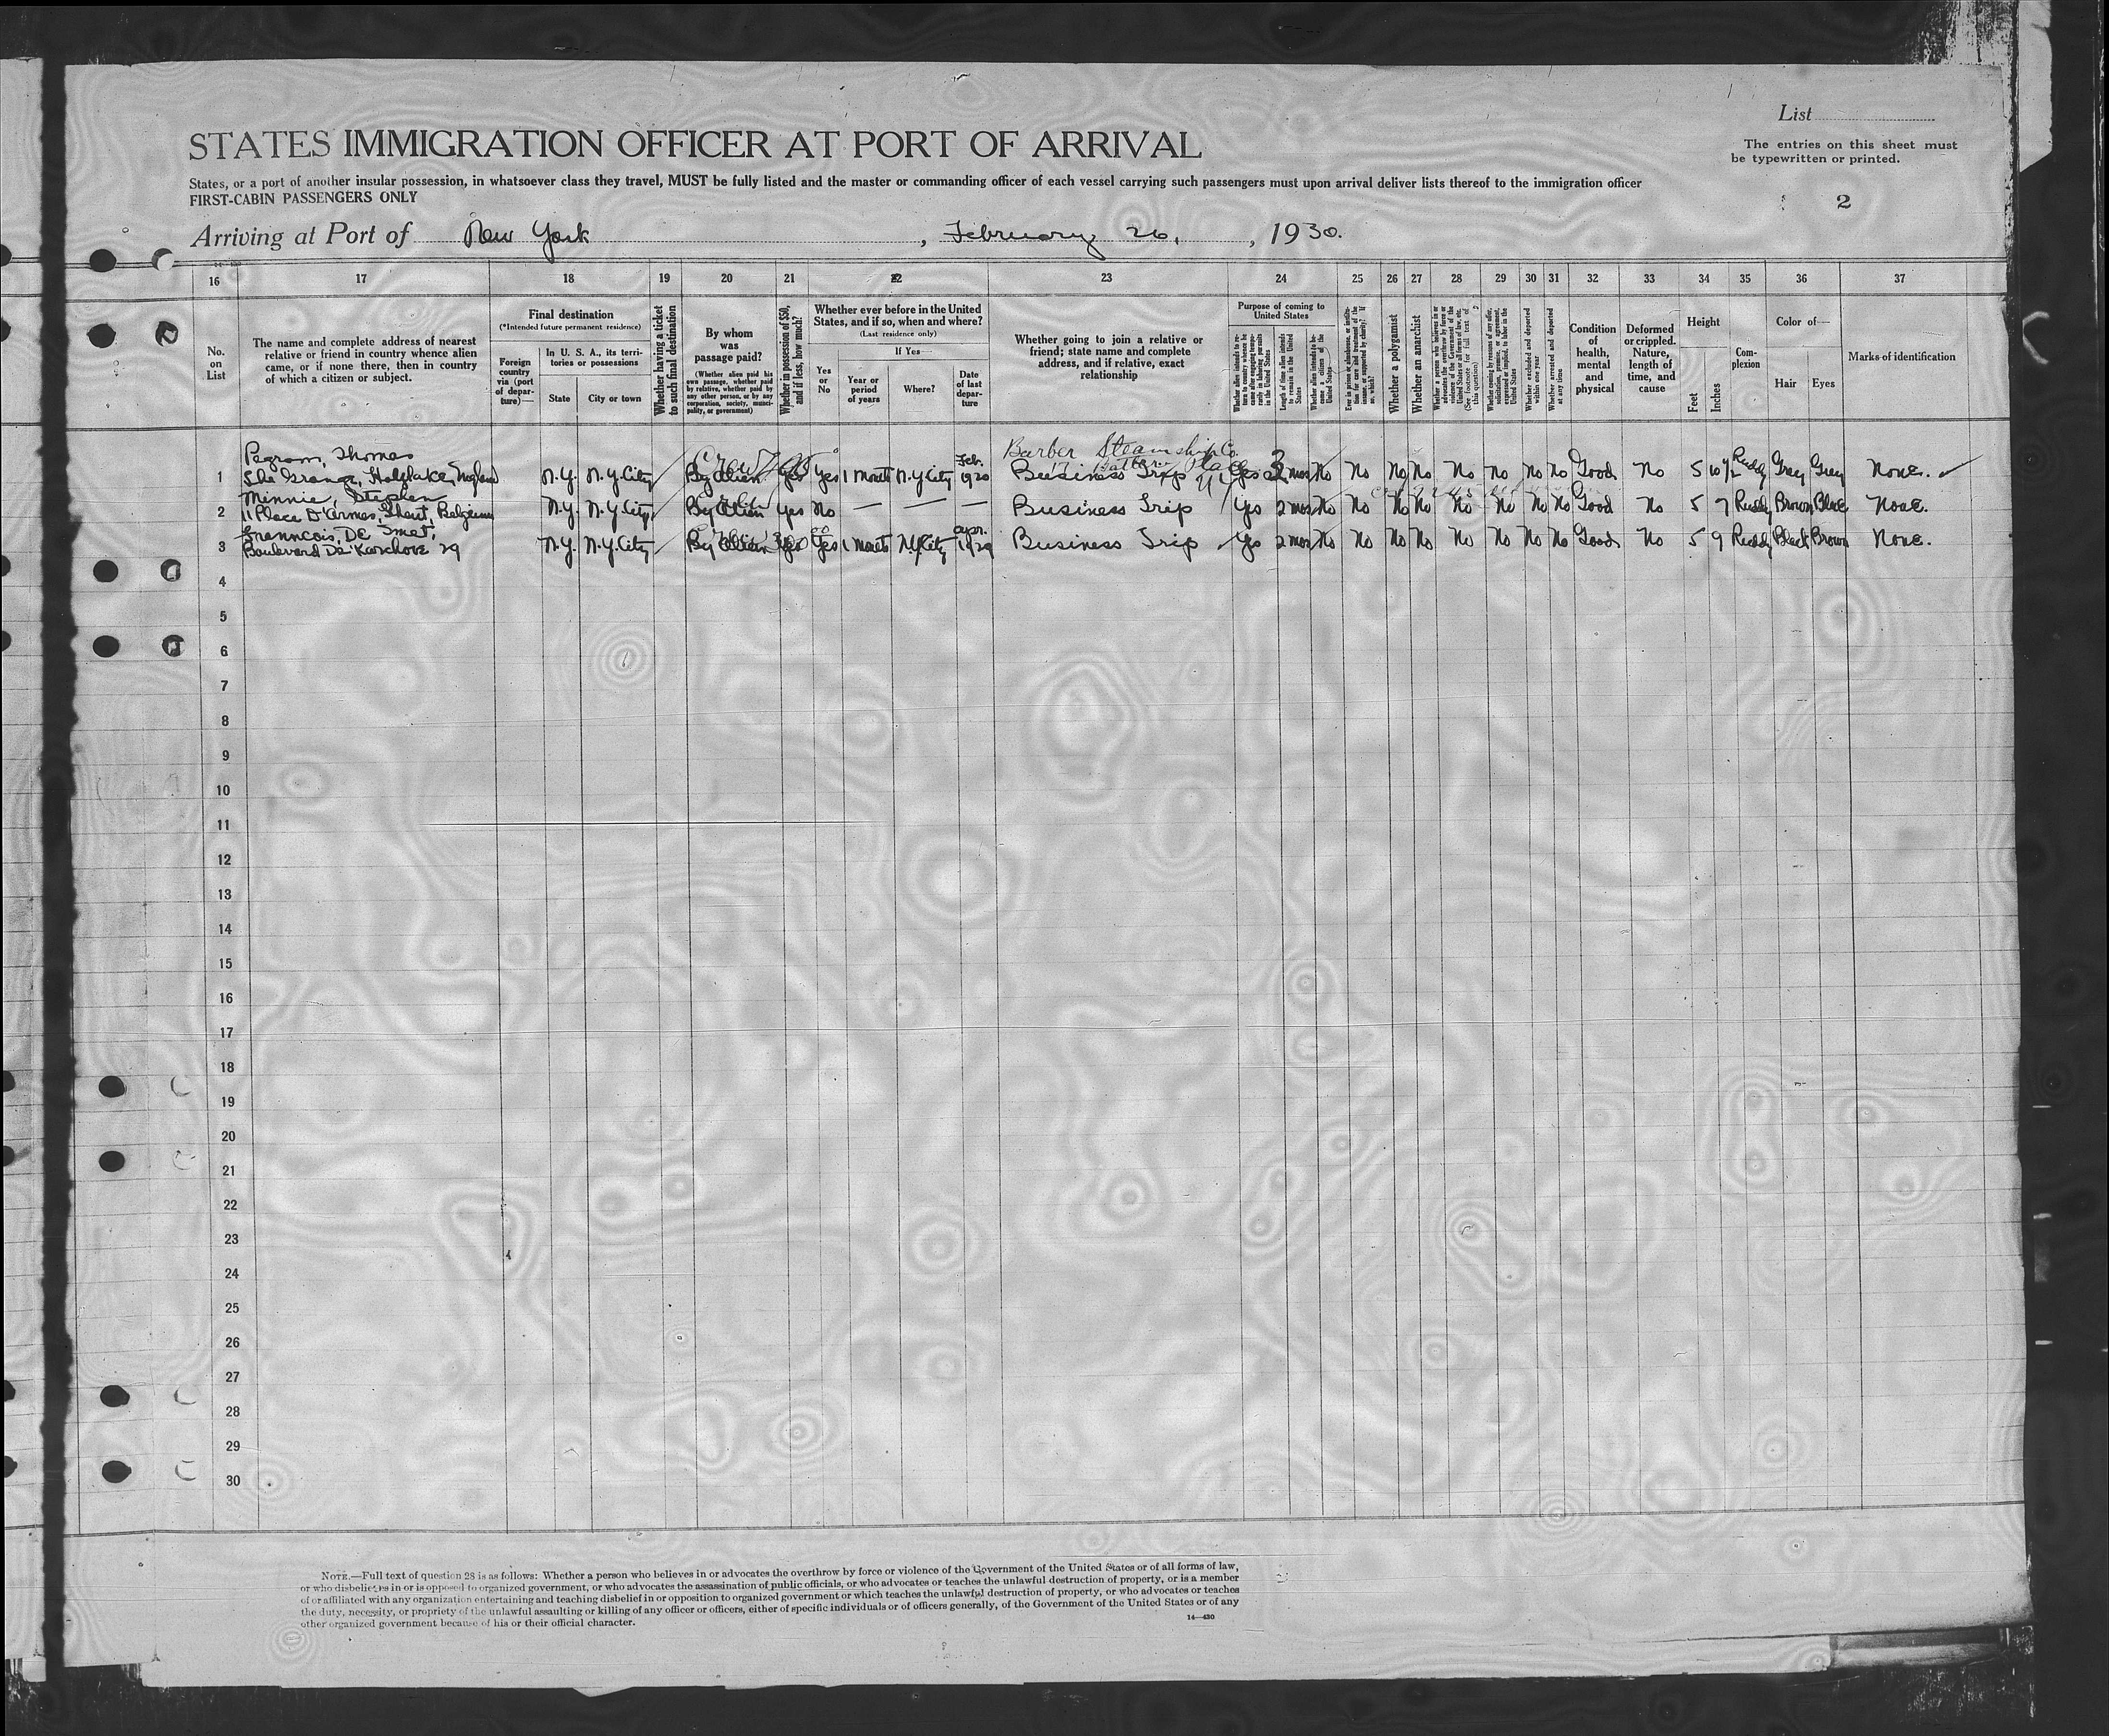 List
The entries on this sheet must
be typewritten or printed.
STATES IMMIGRATION OFFICER AT PORT OF ARRIVAL
States, or a port of another insular possession, in whatsoever class they travel, MUST be fully listed and the master or commanding officer of each vessel carrying such passengers must upon arrival deliver lists thereof to the immigration officer
FIRST-CABIN PASSENGERS ONLY
2
Arriving at Port of New York, February 26, 1930.
16 17 18 19 20 21 22 23 24 25 26 27 28 29 30 31 32 33 34 35 36 37
No. on List
The name and complete address of nearest
relative or friend in country whence alien
came, or if none there, then in country
of which a citizen or subject.
Final destination
(*Intended future permanent residence)
Foreign country via (port of departure)—
In U. S. A., its territories or possessions
State
City or town
Whether having a ticket to such final destination
By whom was passage paid?
(Whether alien paid his own passage, whether paid by relative, whether paid by any other person, or by any corporation, society, municipality, or government)
Whether in possession of $50, and if less, how much?
Whether ever before in the United States, and if so, when and where?
(Last residence only)
Yes or No
If Yes—
Year or period of years
Where?
Date of last departure
Whether going to join a relative or
friend; state name and complete
address, and if relative, exact
relationship
Purpose of coming to United States
Whether alien intends to return to country whence he came after engaging temporarily in laboring pursuits in the United States
Length of time alien intends to remain in the United States
Whether alien intends to become a citizen of the United States
Whether a polygamist
Whether an anarchist
Whether excluded and deported within one year
Whether arrested and deported at any time
Condition of health, mental and physical
Deformed or crippled. Nature, length of time, and cause
Height
Feet
Inches
Complexion
Color of—
Hair
Eyes
Marks of identification
Pegram, Thomas
Barber Steamship Co.
1 The Grange, Hoylake, England N.Y. N.Y.City By Alien Yes Yes 1 month N.Y City Feb. 1920 Business Trip Yes 2 mos No No No No No No No No Good No 5 10½ Ruddy Gray Grey None.
Minnie, Stephen
2 11 Place D'Armes, Ghent, Belgium N.Y. N.Y.City By Alien Yes No — — — Business Trip Yes 2 mos No No No No No No No No Good No 5 7 Ruddy Brown Blue None.
Franncois, De Smet,
3 Boulevard De Kerchove 29 N.Y. N.Y.City By Alien Yes Yes 1 month N.Y City Apr. 1929 Business Trip Yes 2 mos No No No No No No No No Good No 5 9 Ruddy Black Brown None.
4
5
6
7
8
9
10
11
12
13
14
15
16
17
18
19
20
21
22
23
24
25
26
27
28
29
30
NOTE.—Full text of question 28 is as follows: Whether a person who believes in or advocates the overthrow by force or violence of the Government of the United States or of all forms of law,
or who disbelieves in or is opposed to organized government, or who advocates the assassination of public officials, or who advocates or teaches the unlawful destruction of property, or is a member
of or affiliated with any organization entertaining and teaching disbelief in or opposition to organized government or which teaches the unlawful destruction of property, or who advocates or teaches
the duty, necessity, or propriety of the unlawful assaulting or killing of any officer or officers, either of specific individuals or of officers generally, of the Government of the United States or of any
other organized government because of his or their official character.
14—430